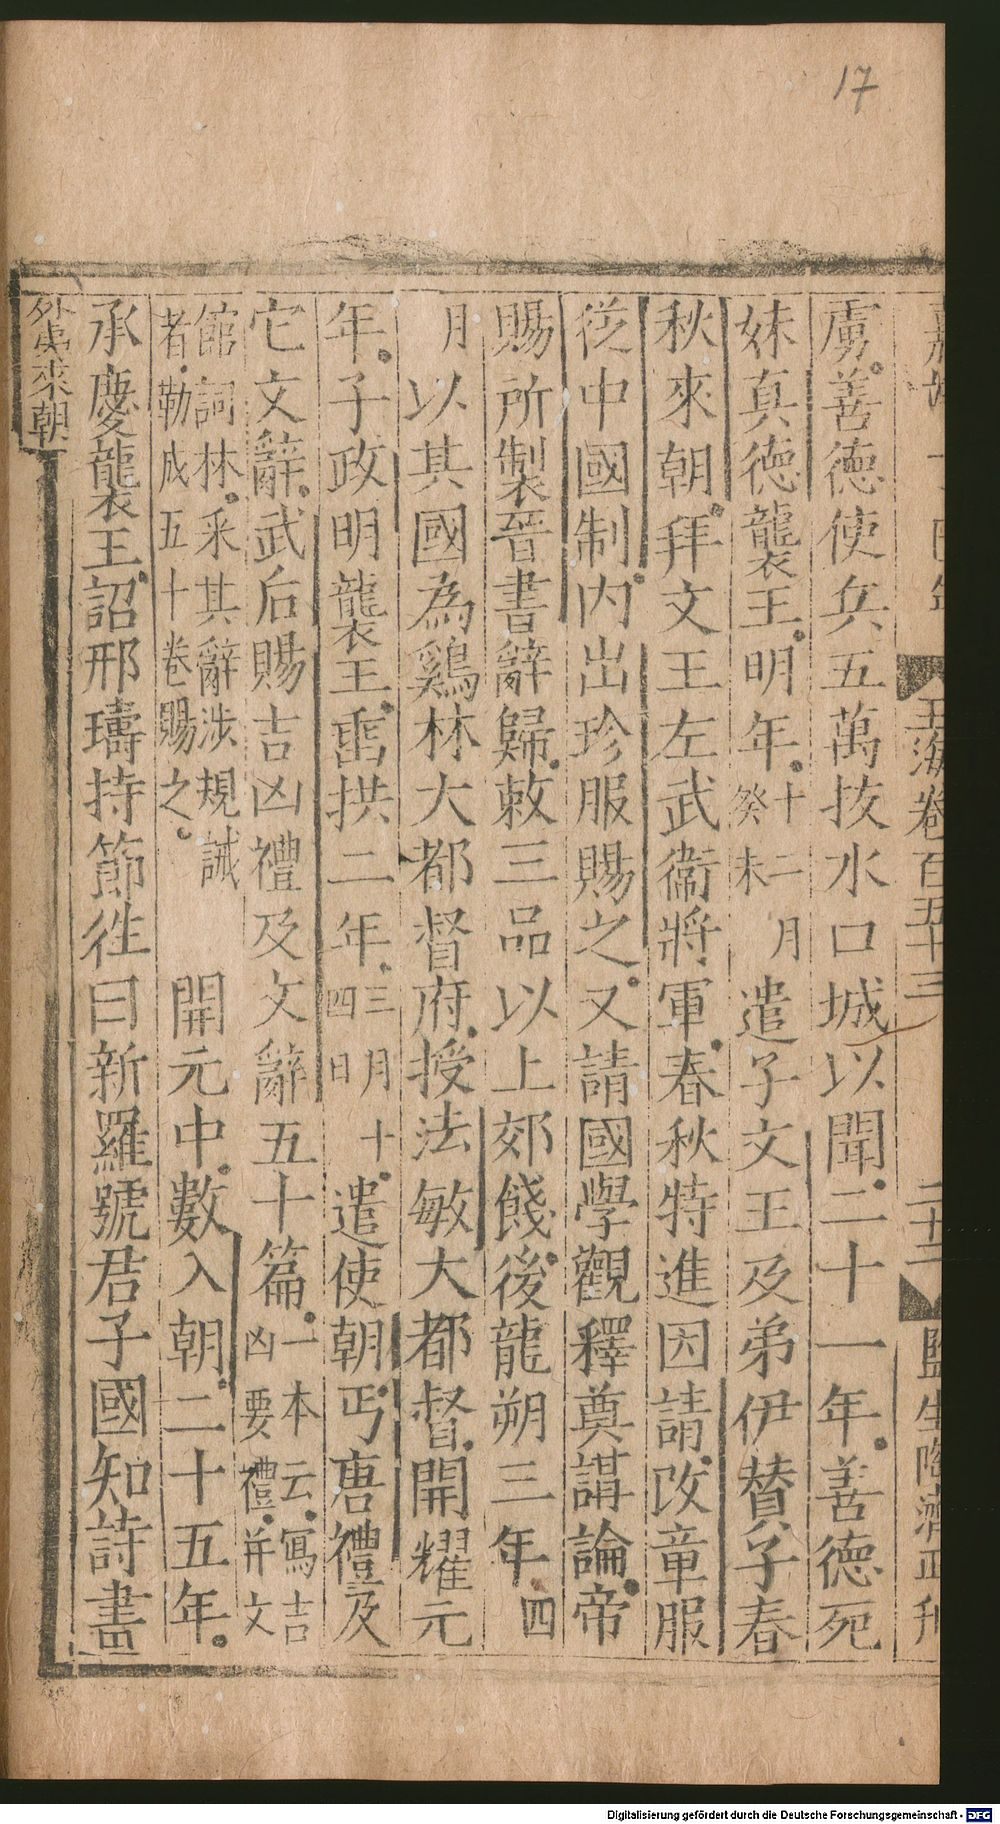 17
玉海卷百五十三
二十二
虜善德使兵五萬抜水口城以聞二十一年善德死
妹真德襲王明年十二月癸未遣子文王及弟伊賛子春
秋來朝拜文王左武衛將軍春秋特進因請改章服
從中國制内出珍服賜之又請國學觀釋奠講論帝
賜所製晉書辭歸敕三品以上郊餞後龍朔三年四
月以其國為鷄林大都督府授法敏大都督開耀元
年子政明襲王垂拱二年三月十四日遣使朝丐唐禮及
它文辭武后賜吉凶禮及文辭五十篇一本云寫吉凶要禮并文
館詞林采其辭涉規誡者勒成五十卷賜之　開元中數入朝二十五年
承慶襲王詔邢璹持節徃曰新羅號君子國知詩書
外夷來朝
Digitalisierung gefördert durch die Deutsche Forschungsgemeinschaft - DFG